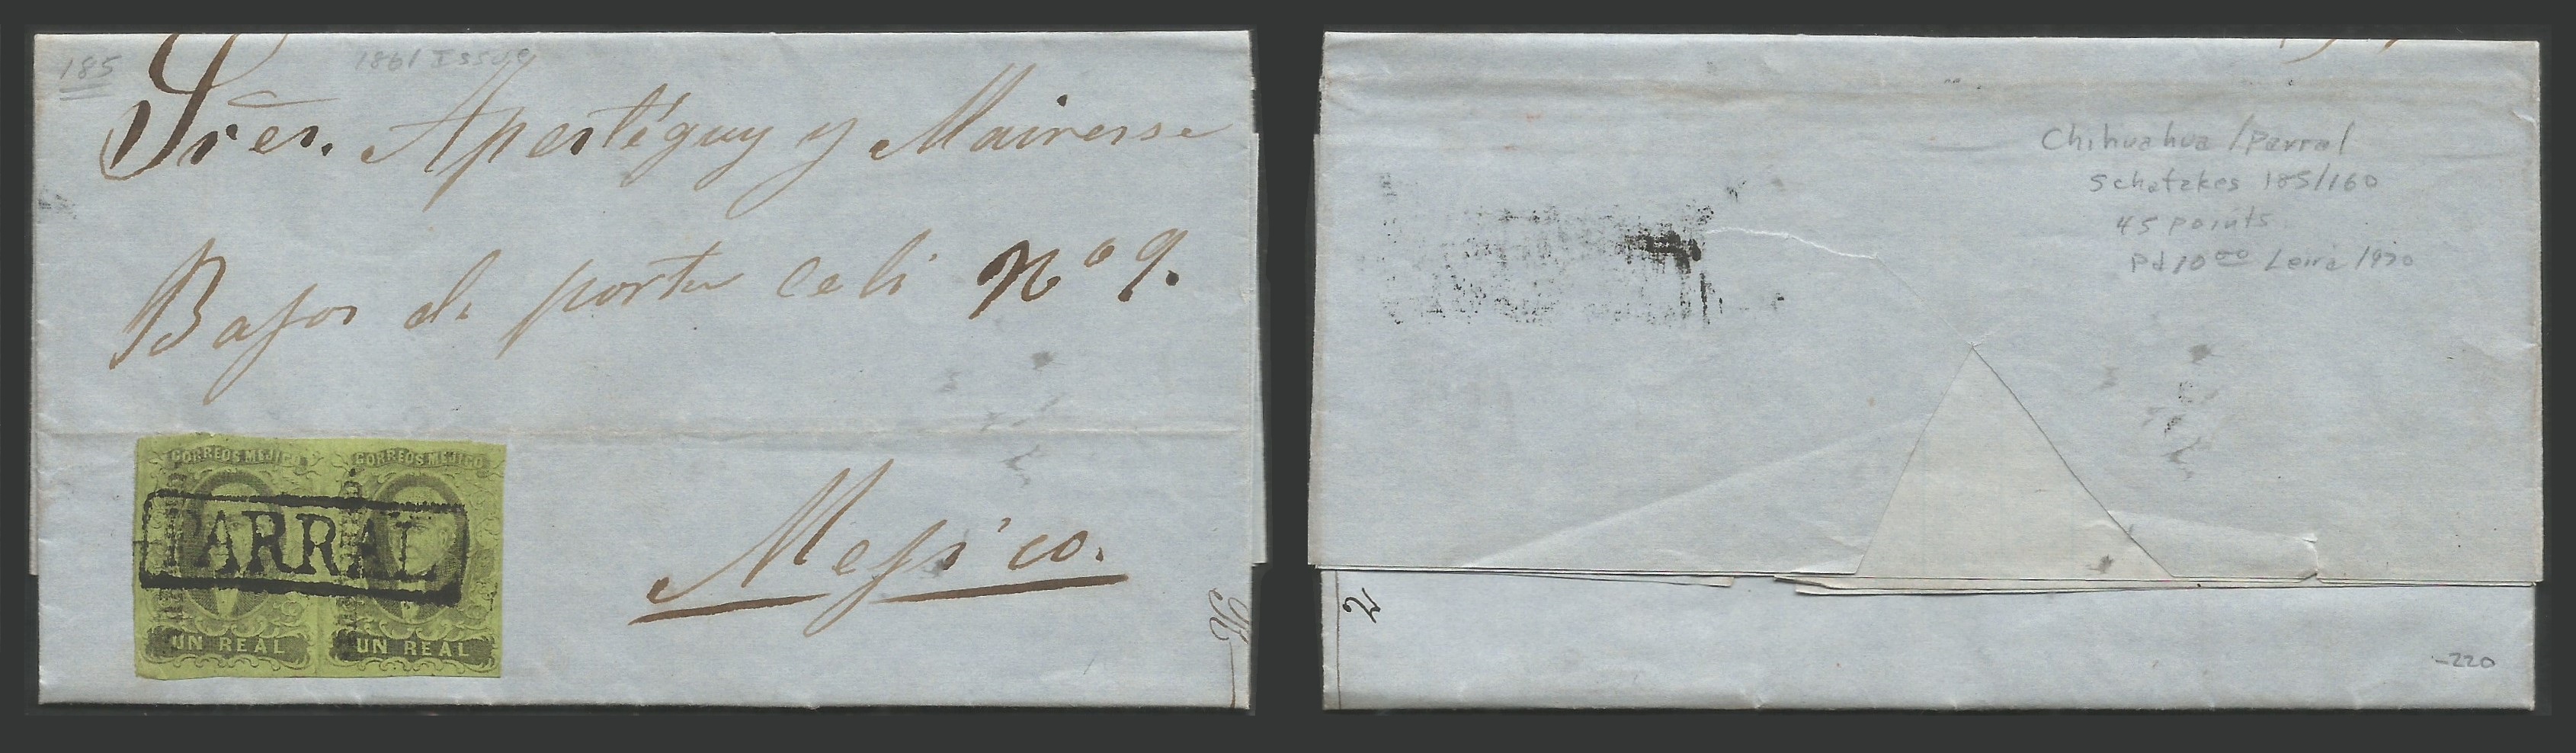 185
1861 Issue
Sres. Apestéguy y Mairesse
Bajos de porta Celi No 9.
Mejico.
CORREOS MEJICO CORREOS MEJICO
PARRAL
UN REAL UN REAL
Chihuahua / Parral
Schatzkes 185/160
45 points
Pd 10 00 1970
2
-220